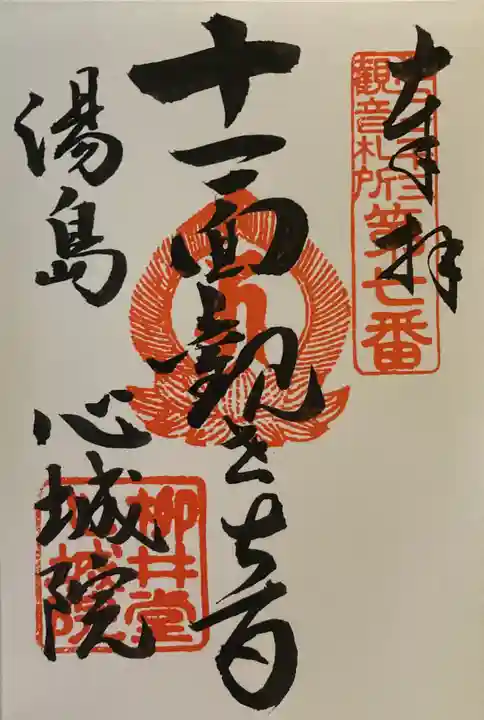 奉拝
観音札所第七番
十一面観世音
湯島 心城院
柳井堂
心城院